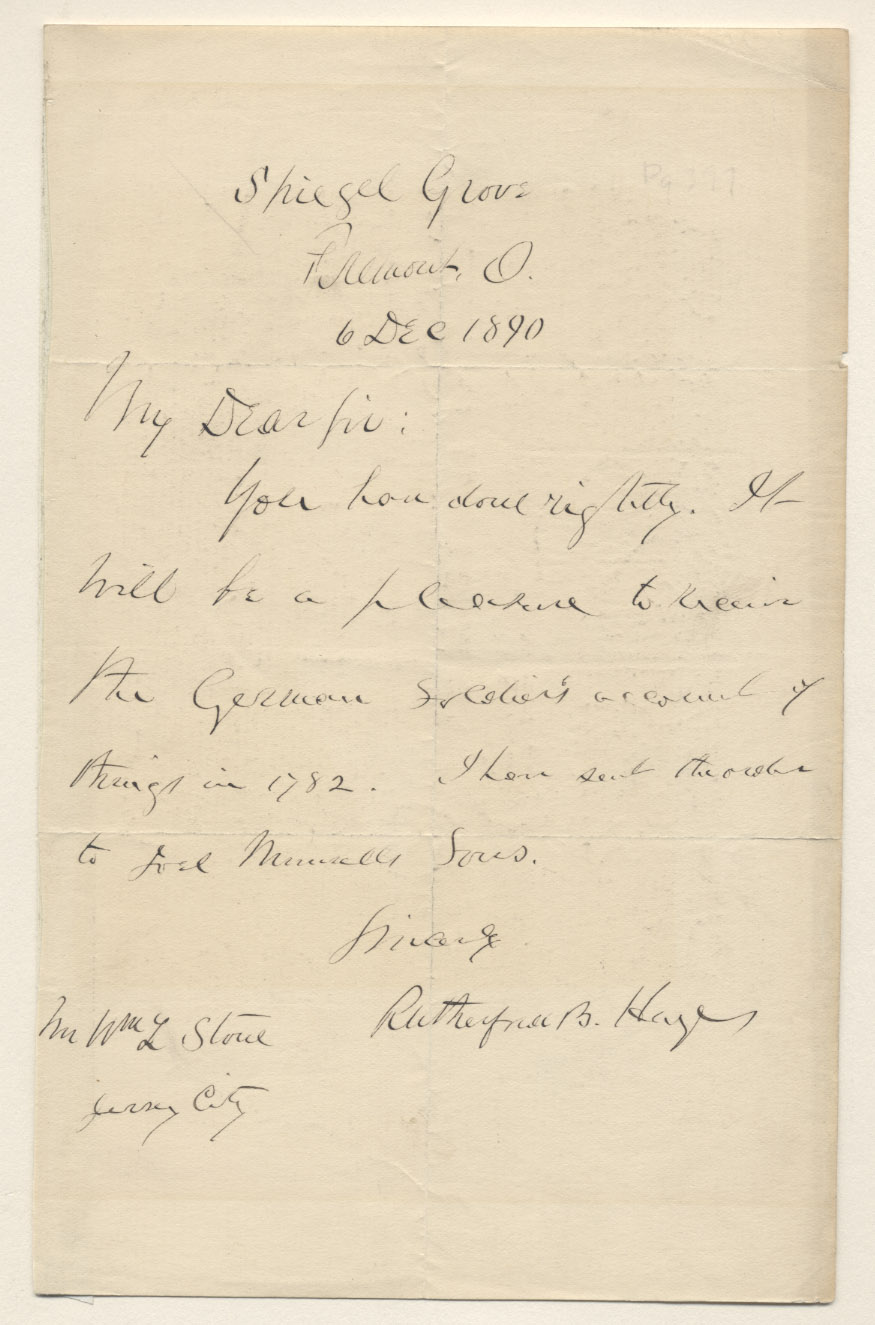 Spiegel Grove
Fremont, O.
6 Dec 1890
My Dear Sir:
You have done rightly. It
will be a pleasure to receive
the German Soldier's account of
things in 1782. I have sent the order
to Joel Munsells Sons.
Sincerely
Rutherford B. Hayes
Mr Wm L Stone
Jersey City